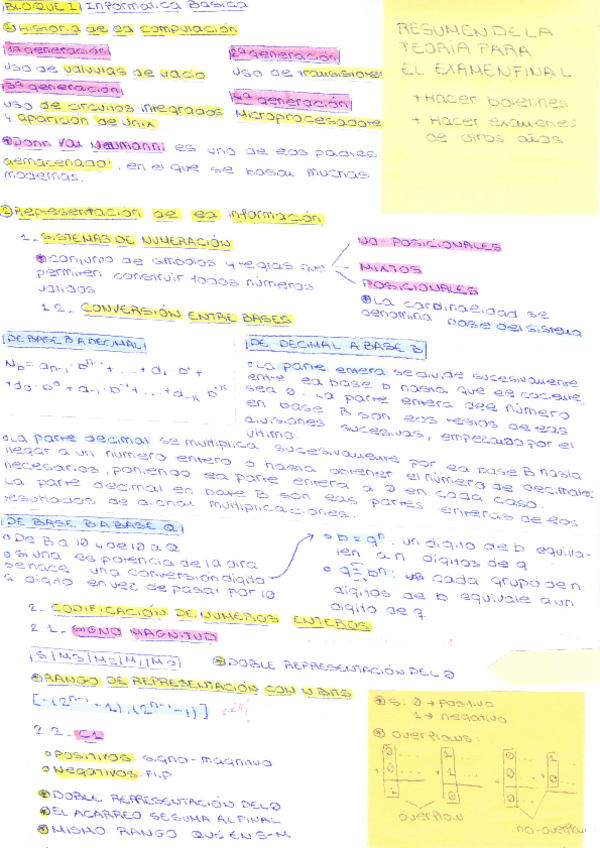 BLOQUE 1 Informática Básica
① Historia de la computación
1ª generación
uso de valvulas de vacio
2ª generación
uso de transistores
3ª generación
uso de circuitos integrados
y aparición de Unix
4ª generación
Microprocesadores
Von Neumann: es uno de los padres
almacenado, en el que se basan muchas
modernas.
RESUMEN DE LA
TEORÍA PARA
EL EXAMEN FINAL
+ Hacer boletines
+ Hacer exámenes
de otros años
② Representación de la información
1- SISTEMAS DE NUMERACIÓN
conjunto de símbolos y reglas que
permiten construir todos números
válidos
NO-POSICIONALES
MIXTOS
POSICIONALES
La cardinalidad se
denomina base del sistema
1.2. CONVERSIÓN ENTRE BASES
DE BASE B A DECIMAL
N_b = a_{n-1} b^{n-1} + ... + d_1 · b^1 +
+ d_0 · b^0 + d_{-1} · b^{-1} + ... + d_{-k} b^{-k}
DE DECIMAL A BASE B
La parte entera se divide sucesivamente
entre la base b hasta que el cociente
sea 0. La parte entera del número
en base B son los restos de las
divisiones sucesivas, empezando por el
último.
La parte decimal se multiplica sucesivamente por la base B hasta
llegar a un numero entero o hasta obtener el número de decimales
necesarios, poniendo la parte entera a 0 en cada caso.
La parte decimal en base B son las partes enteras de los
resultados de dichas multiplicaciones.
DE BASE B A BASE Q
De B a 10 y de 10 a Q
Si una es potencia de la otra
se hace una conversión dígito
a dígito en vez de pasar por 10
b = q^n: un dígito de b equiva-
len a n dígitos de q
q = b^n: cada grupo de n
dígitos de b equivale a un
dígito de q
2- CODIFICACIÓN DE NUMEROS ENTEROS
2.1- SIGNO MAGNITUD
|S|M3|M2|M1|M0|
DOBLE REPRESENTACIÓN DEL 0
RANGO DE REPRESENTACIÓN CON N BITS
[-(2^{n-1} - 1), (2^{n-1} - 1)]
2.2- C1
Positivos: signo-magnitud
Negativos: F.I.P
DOBLE REPRESENTACIÓN DEL 0
EL ACARREO SE SUMA AL FINAL
MISMO RANGO QUE EN S-M
S: 0 → positivo
1 → negativo
overflows:
0 ... 1 ... 0 ... 1 ...
+ 0 ... + 1 ... + 0 ...
1 0
overflow
no-overflow